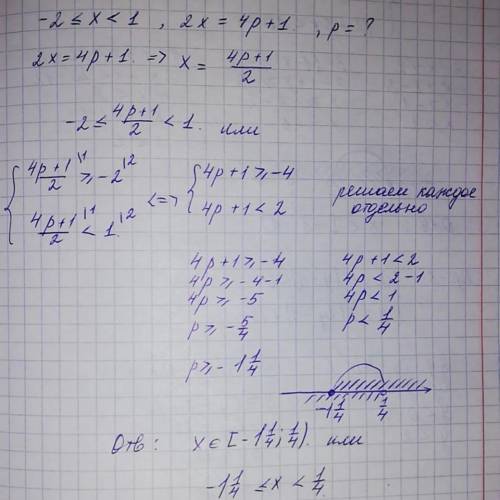 -2 ≤ x < 1 , 2x = 4p+1 , p = ?
2x = 4p+1 => x = (4p+1)/2
-2 ≤ (4p+1)/2 < 1 . или
{ (4p+1)/2 \1 ≥ -2 \2 <=> { 4p+1 ≥ -4
(4p+1)/2 \1 < 1 \2 4p+1 < 2
решаем каждое
отдельно
4p+1 ≥ -4 4p+1 < 2
4p ≥ -4-1 4p < 2-1
4p ≥ -5 4p < 1
p ≥ -5/4 p < 1/4
p ≥ -1 1/4
-1 1/4 1/4
Отв: x ∈ [-1 1/4; 1/4). или
-1 1/4 ≤ x < 1/4